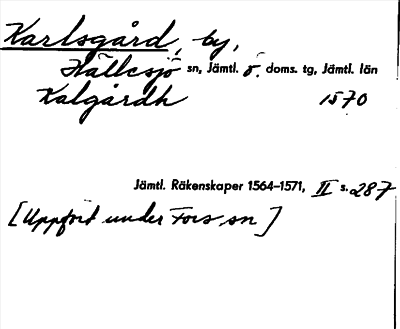 Karlsgård, by,
Hällesjö sn, Jämtl. ö. doms. tg, Jämtl. län
Kalgårdh 1570
Jämtl. Räkenskaper 1564–1571, II s. 287
[Uppfört under Fors sn]